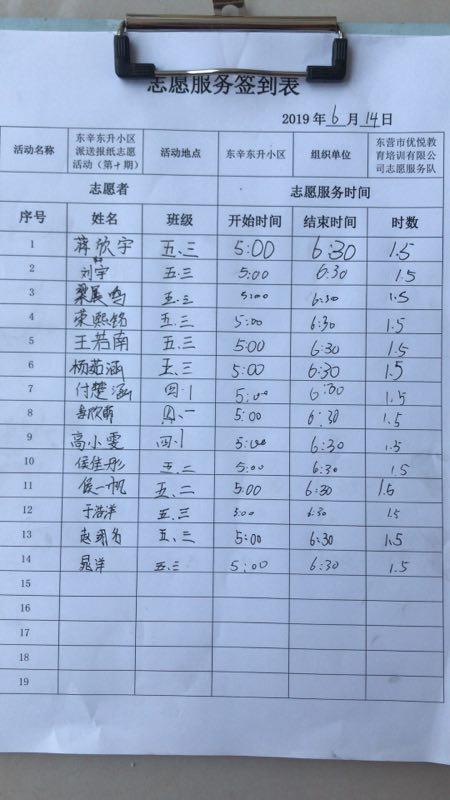 志愿服务签到表
2019 年 6 月 14 日
活动名称 东辛东升小区派送报纸志愿活动（第十期） 活动地点 东辛东升小区 组织单位 东营市优悦教育培训有限公司志愿服务队
志愿者 志愿服务时间
序号 姓名 班级 开始时间 结束时间 时数
1 蒋欣宇 五.三 5:00 6:30 1.5
2 刘宇 五.三 5:00 6:30 1.5
3 梁展鸣 五.三 5:00 6:30 1.5
4 荣熙铭 五.三 5:00 6:30 1.5
5 王若南 五.三 5:00 6:30 1.5
6 杨茹涵 五.三 5:00 6:30 1.5
7 付楚涵 四.1 5:00 6:00 1.5
8 四.一 5:00 6:30 1.5
9 高小雯 四.1 5:00 6:30 1.5
10 侯佳彤 五.二 5:00 6:30 1.5
11 侯一帆 五.二 5:00 6:30 1.5
12 于浩洋 五.三 5:00 6:30 1.5
13 五.三 5:00 6:30 1.5
14 晁洋 五.三 5:00 6:30 1.5
15
16
17
18
19